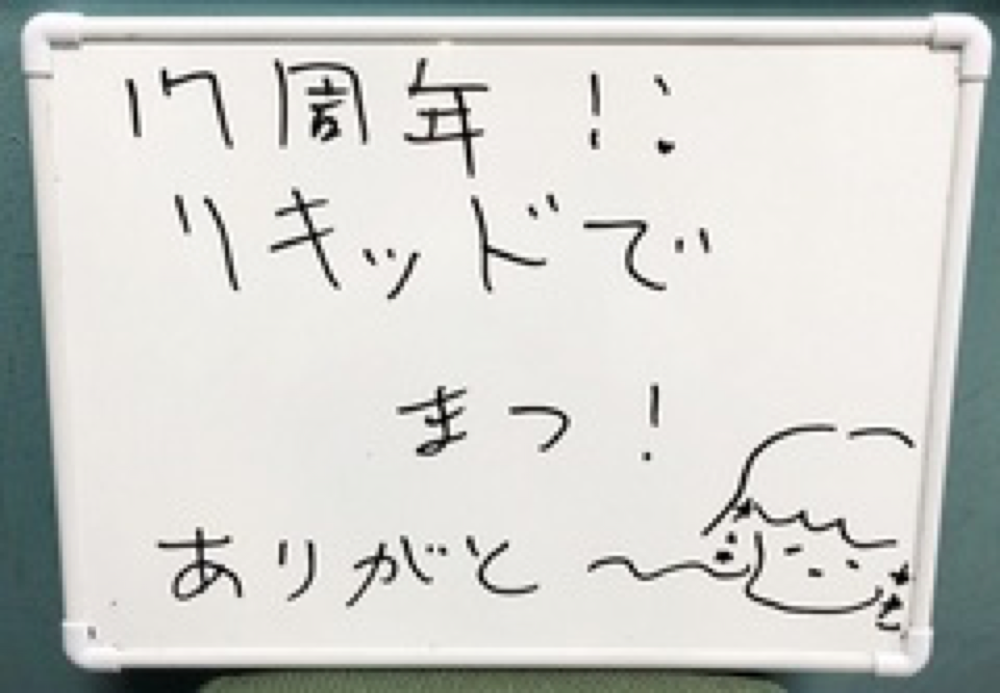 17周年!!
リキッドで
まつ!
ありがと〜